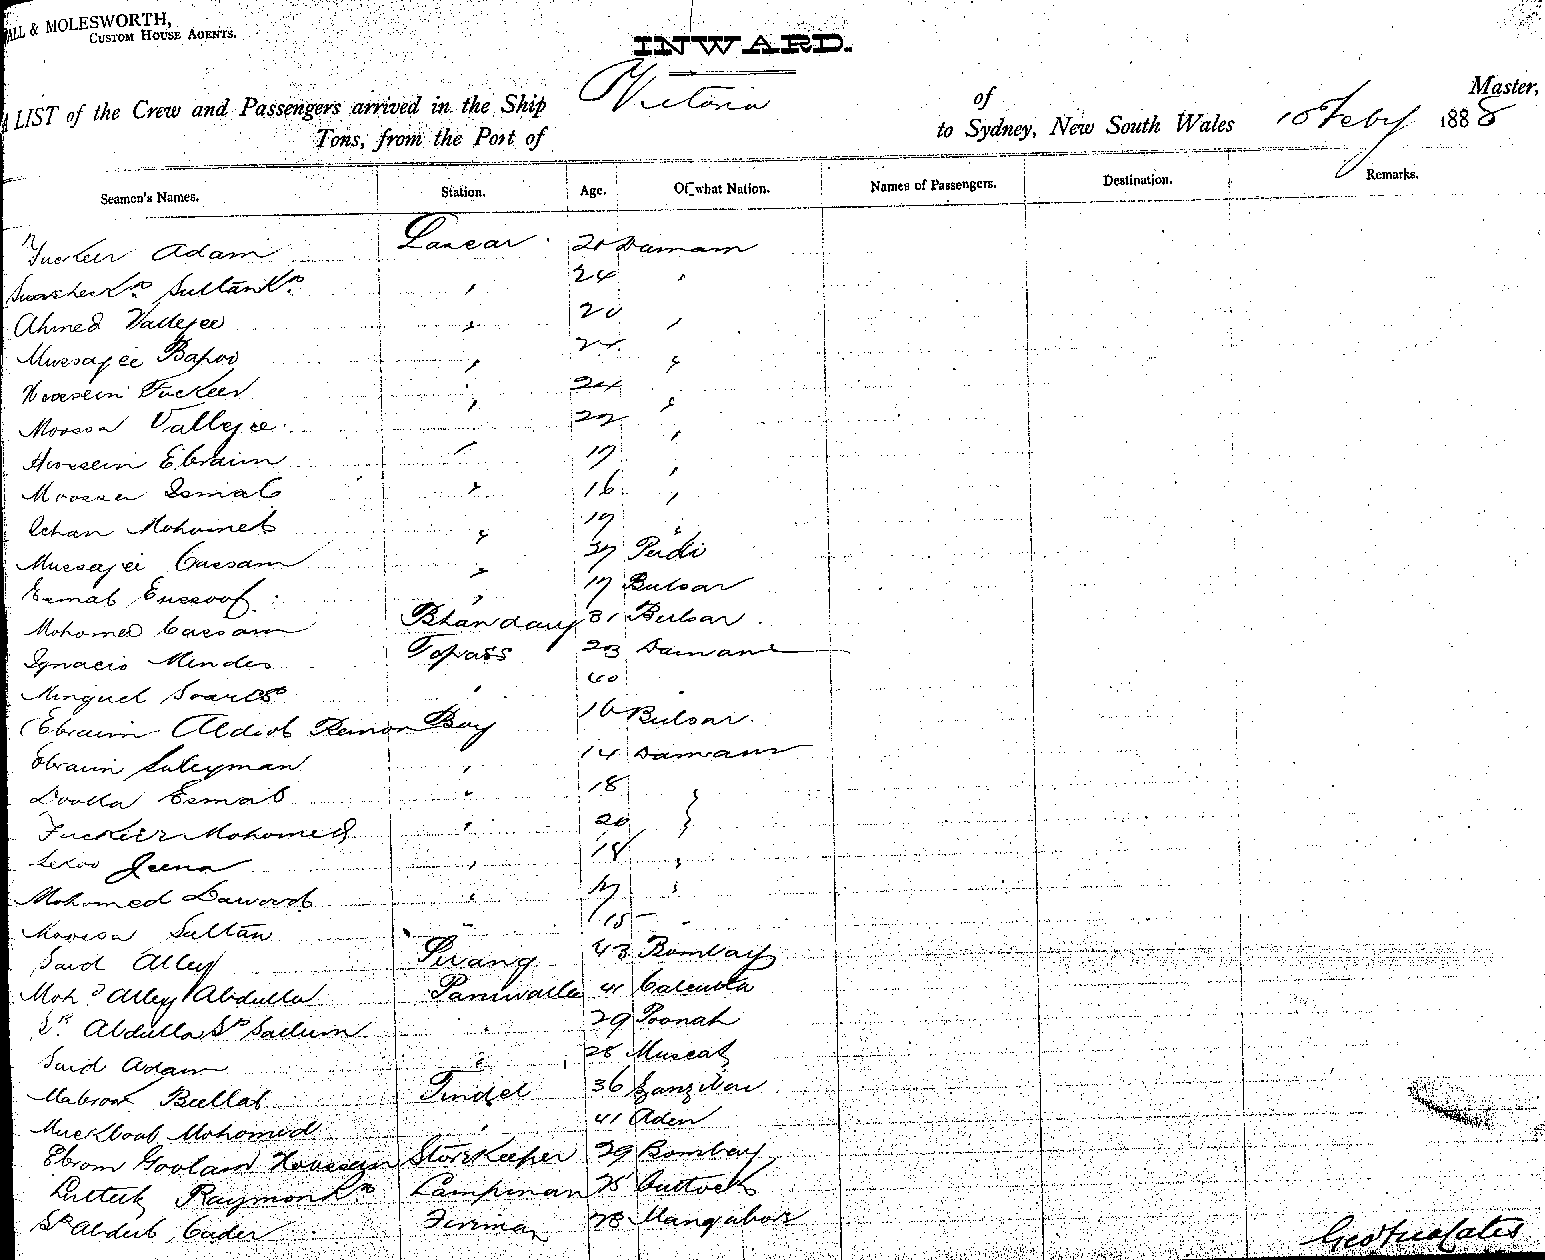 ALL & MOLESWORTH,
CUSTOM HOUSE AGENTS.
INWARD.
A LIST of the Crew and Passengers arrived in the Ship Victoria of Master,
Tons, from the Port of to Sydney, New South Wales 10 Feby 1888
Seamen's Names. Station. Age. Of what Nation. Names of Passengers. Destination. Remarks.
Fuckeer Adam Lascar 20 Damam
Sultan Kn 24 "
Ahmed Vallejee " 20 "
Mussajee Bapoo " "
Hoossein Fuckeer " 24 "
Moossa Vallejee " 22 "
Hoossein Ebraim " 17 "
Moossa Esmal " 16 "
Mohomet " 17 "
Mussajee Cassam " 37 Perdi
Esmal Eussoof " 17 Bulsar
Mohomed Cassam Bhandary 31 Bulsar
Ignacio Mendes Topass 23 Damam
Minguel Soares " 60
Ebraim Aldul Remon Boy 16 Bulsar
Ebraim Suleyman " 14 Damam
Doolla Esmal " 18 "
Fuckeer Mohomed " 20 "
Jeena " 18 "
Mohomed Dawood " 17 "
Moossa Sultan " 15 "
Said Alley Sirang 43 Bombay
Mohd Alley Abdulla Paniwalla 41 Calcutta
Sk Abdulla Sk Sallum " 29 Poonah
Said Adam " 28 Muscat
Mabrook Bullal Tindel 36 Zanzibar
Muckboob Mohomed " 41 Aden
Ebrom Goolam Hoossein StoreKeeper 29 Bombay
Raymonkn Lampman 25 Cuttock
Sk Abdul Cader Fireman 28 Mangalore